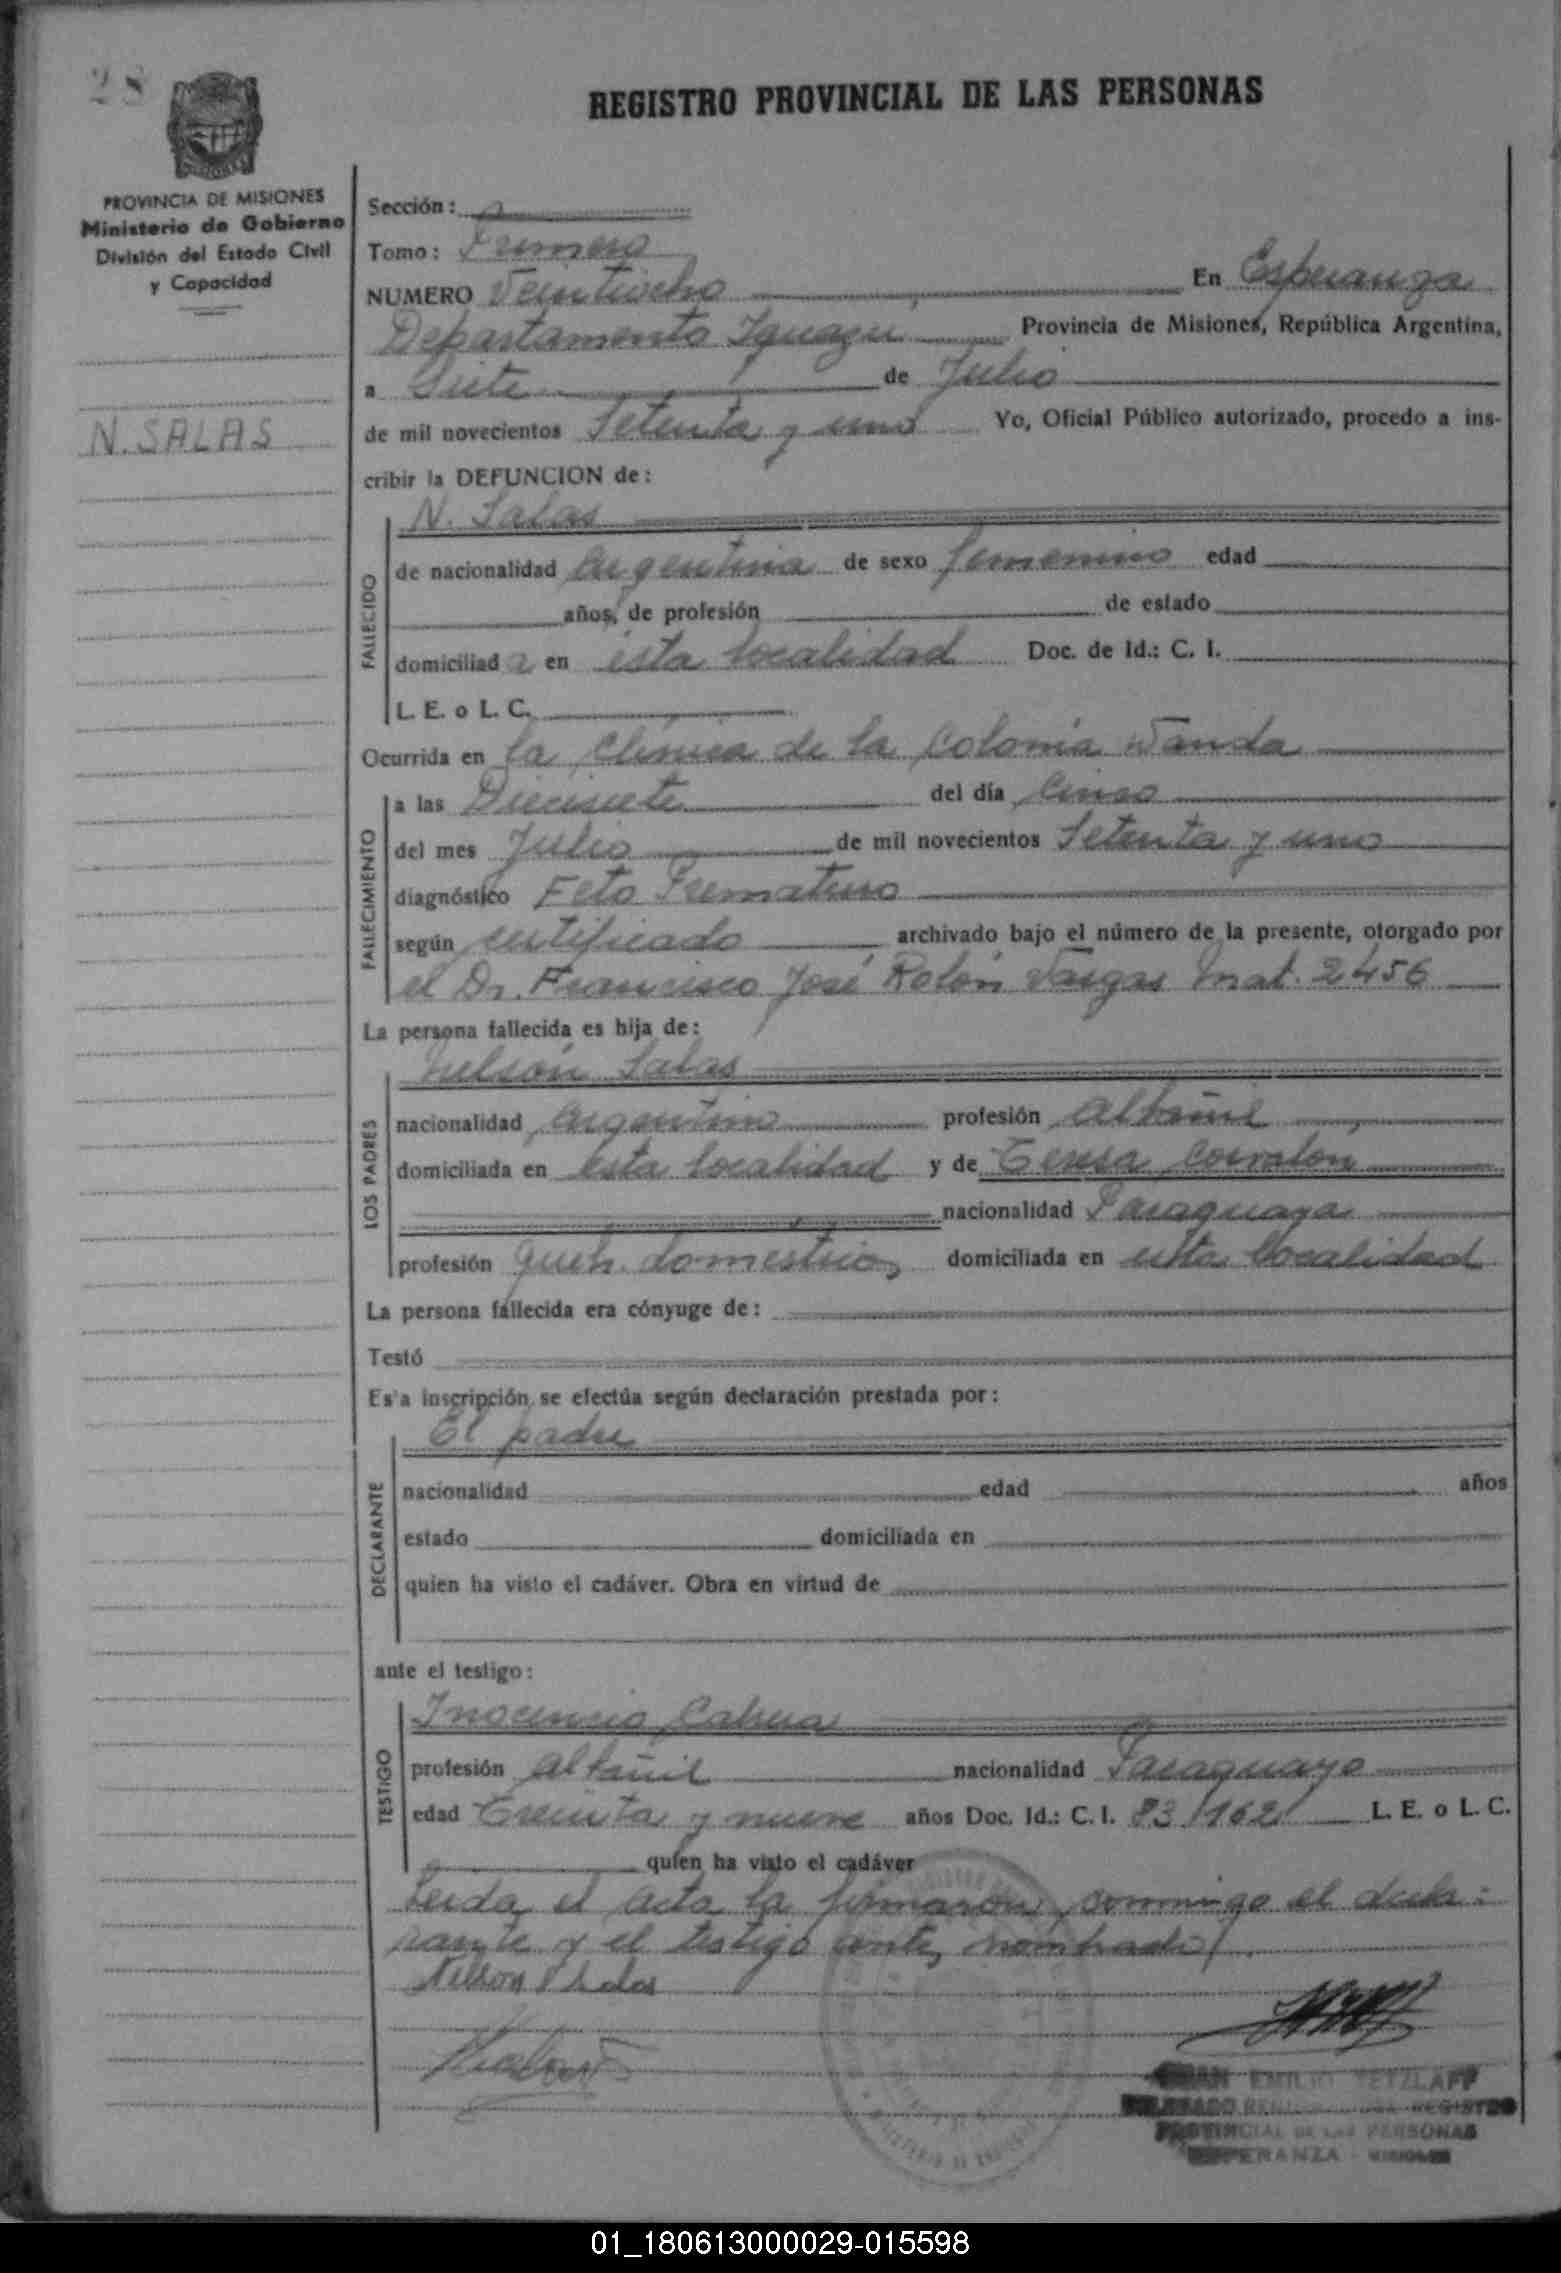 28
REGISTRO PROVINCIAL DE LAS PERSONAS
PROVINCIA DE MISIONES
Ministerio de Gobierno
División del Estado Civil
y Capacidad
N. SALAS
Sección:
Tomo: Primero
NUMERO Veintiocho En Esperanza
Departamento Iguazu Provincia de Misiones, República Argentina,
a Siete de Julio
de mil novecientos Setenta y uno Yo, Oficial Público autorizado, procedo a ins-
cribir la DEFUNCION de:
N. Salas
FALLECIDO
de nacionalidad argentina de sexo femenino edad
años, de profesión de estado
domiciliada en ésta localidad Doc. de Id.: C. I.
L. E. o L. C.
Ocurrida en la Clínica de la Colonia Wanda
FALLECIMIENTO
a las Diecisiete del día Cinco
del mes Julio de mil novecientos Setenta y uno
diagnóstico Feto Prematuro
según certificado archivado bajo el número de la presente, otorgado por
el Dr. Francisco José Rolón Vargas Mat. 2456
La persona fallecida es hija de:
Nelson Salas
LOS PADRES
nacionalidad argentino profesión albañil
domiciliada en esta localidad y de Teresa
nacionalidad Paraguaya
profesión queh. domésticos domiciliada en esta localidad
La persona fallecida era cónyuge de:
Testó
Es'a inscripción se efectúa según declaración prestada por:
El padre
DECLARANTE
nacionalidad edad años
estado domiciliada en
quien ha visto el cadáver. Obra en virtud de
ante el testigo:
Inocencio Cabrera
TESTIGO
profesión albañil nacionalidad Paraguayo
edad Treinta y nueve años Doc. Id.: C. I. 83/162 L. E. o L. C.
quien ha visto el cadáver
Leída el acta la firmaron conmigo el decla-
rante y el testigo antes nombrado
Nelson Salas
EMILIO TETZLAFF
PROVINCIAL DE LAS PERSONAS
ESPERANZA - MISIONES
01_180613000029-015598